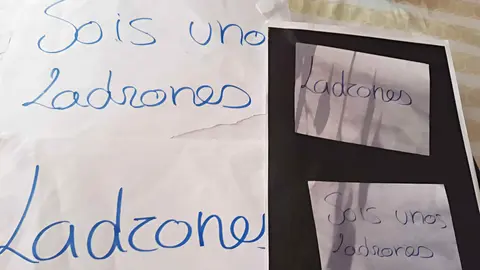 Sois uno
Ladrones
Ladrone
Ladrones
Sois unos
ladrones